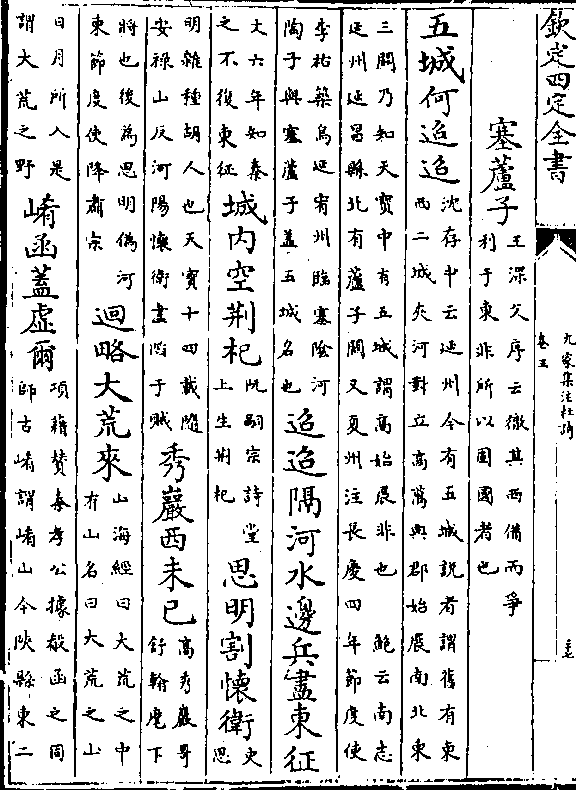 欽定四定全書
九家集注杜詩
卷三
塞蘆子
王深父序云徹其西備而爭
利于東非所以固國者也
五城何迢迢
沈存中云延州今有五城說者謂舊有東
西二城夾河對立高萬興郡始展南北東
三關乃知天寶中有五城謂高始展非也 鮑云南志
延州延昌縣北有蘆子關又夏州注長慶四年節度使
李祐築烏延宥州臨塞陰河
陶子與塞蘆子盖五城名也
迢迢隔河水邊兵盡東征
大六年知秦
之不復東征
城内空荆杞
阮嗣宗詩堂
上生荆杞
思明割懷衛
史
思
明雜種胡人也天寶十四載隨
安禄山反河陽懷衛盡陷于賊
秀巖西未已
高秀巖哥
舒翰麾下
將也後為思明偽河
東節度使降肅宗
迴略大荒來
山海經曰大荒之中
有山名曰大荒之山
日月所入是
謂大荒之野
崤函蓋虚爾
項籍賛秦孝公據殽函之固
師古崤謂崤山今陝縣東二